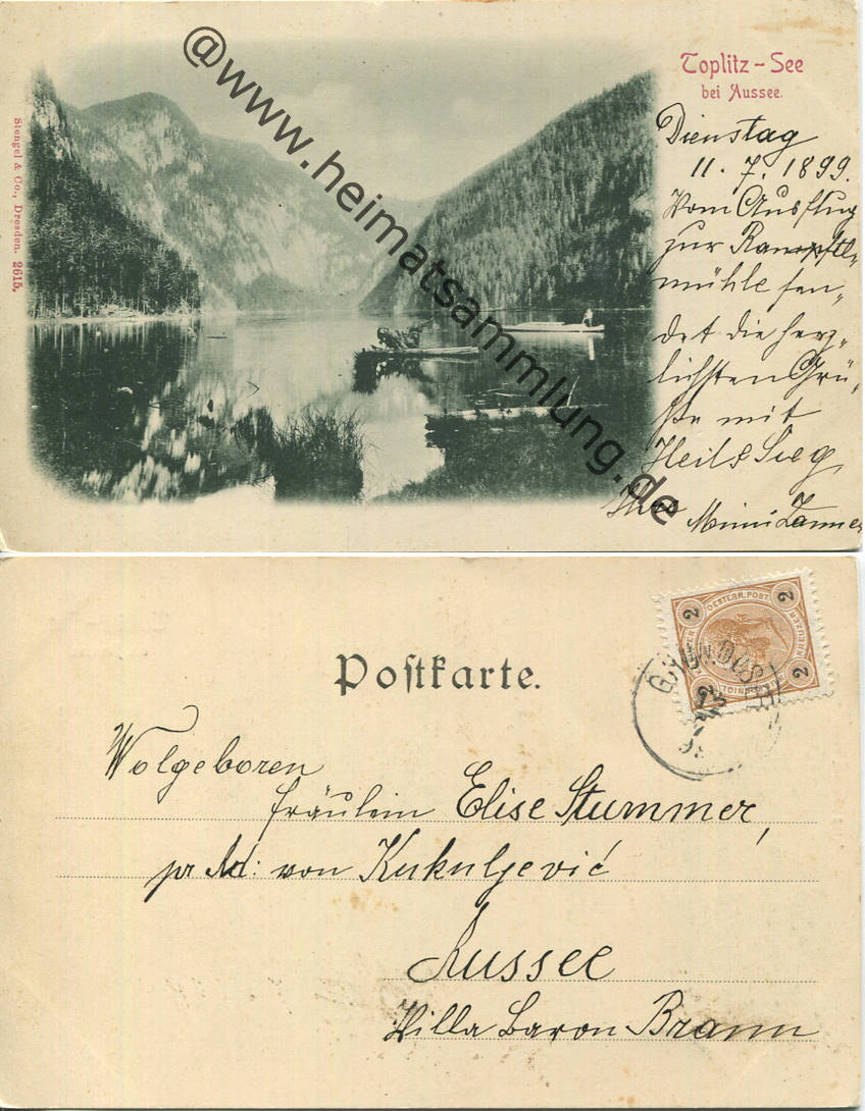 @www.heimatsammlung.de
Toplitz-See
bei Aussee.
Stengel & Co., Dresden. 2615.
Dienstag
11. 7. 1899.
Vom Ausflug
zur Rampfl-
mühle sen-
det die herz-
lichsten Grü-
ße mit
Heil & Sieg
Ihre Minni
Postkarte.
2 OESTERR. POST 2
2 2
GRUNDLS
Wolgeboren
Fräulein Elise Stummer,
pr Ad: von Kukuljević
Aussee
Villa Baron Braun